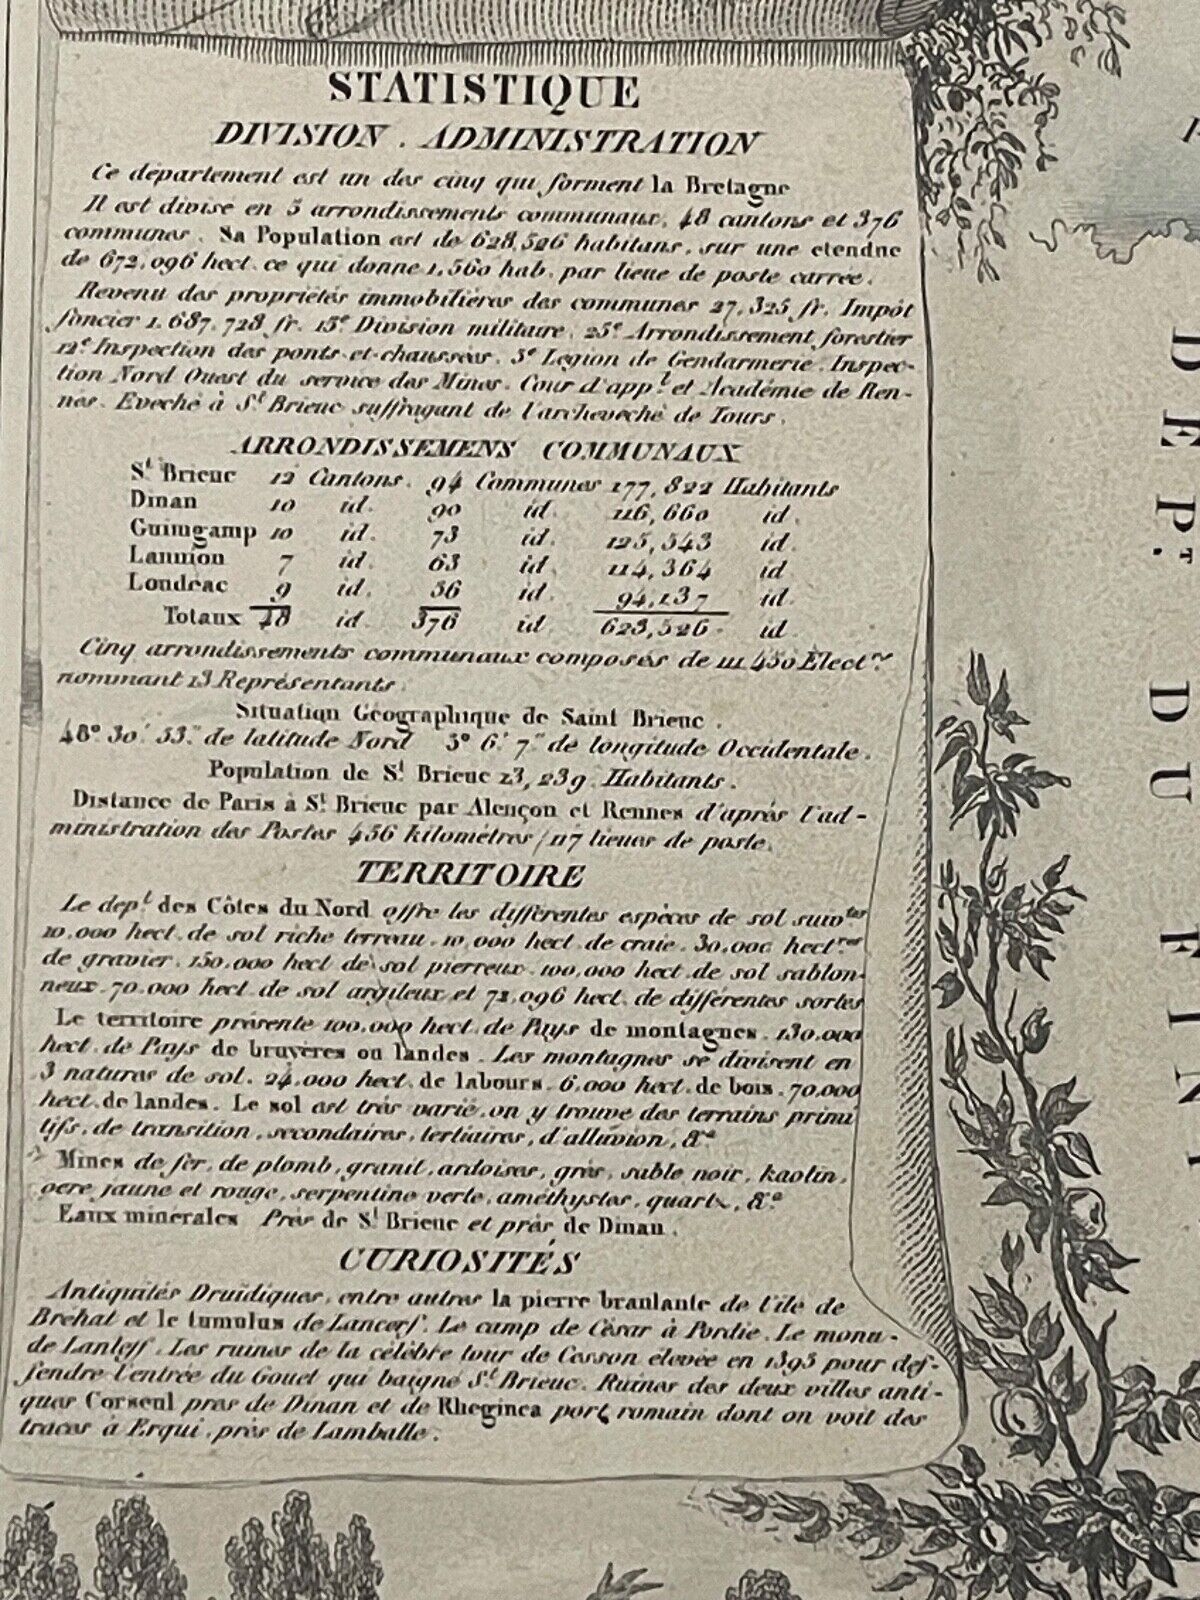 STATISTIQUE
DIVISION . ADMINISTRATION
Ce département est un des cinq qui forment la Bretagne
Il est divisé en 5 arrondissements communaux, 48 cantons et 376
communes. Sa Population est de 628,526 habitans, sur une etendue
de 672,096 hect. ce qui donne 1,560 hab. par lieue de poste carrée.
Revenu des propriétés immobilières des communes 27,325 fr. Impôt
foncier 1,687,728 fr. 13e Division militaire. 25e Arrondissement forestier
12e Inspection des ponts-et-chaussées. 5e Légion de Gendarmerie. Inspec-
tion Nord Ouest du service des Mines. Cour d'appt et Académie de Ren-
nes. Evêché à St Brieuc suffragant de l'archevêché de Tours.
ARRONDISSEMENS COMMUNAUX
St Brieuc 12 Cantons. 94 Communes 177,822 Habitants
Dinan 10 id. 90 id. 116,660 id.
Guimgamp 10 id. 73 id. 125,543 id.
Lannion 7 id. 63 id. 114,364 id
Londéac 9 id. 56 id. 94,137 id.
Totaux 48 id. 376 id 628,526. id
Cinq arrondissements communaux composés de 111,450 Electrs
nommant 13 Représentants.
Situation Géographique de Saint Brieuc.
48° 30' 53" de latitude Nord 5° 6' 7" de longitude Occidentale.
Population de St Brieuc 13,239. Habitants.
Distance de Paris à St Brieuc par Alençon et Rennes d'après l'ad-
ministration des Postes 456 kilomètres / 117 lieues de poste.
TERRITOIRE
Le dept des Côtes du Nord offre les différentes espèces de sol suivtes
10,000 hect. de sol riche terreau. 10,000 hect. de craie. 30,000 hectres
de gravier. 150,000 hect de sol pierreux. 100,000 hect. de sol sablon-
neux. 70,000 hect. de sol argileux et 72,096 hect. de différentes sortes
Le territoire présente 100,000 hect. de Pays de montagnes. 130,000
hect. de Pays de bruyères ou landes. Les montagnes se divisent en
3 natures de sol. 24,000 hect. de labours. 6,000 hect. de bois. 70,000
hect. de landes. Le sol est très varié, on y trouve des terrains primi
tifs, de transition, secondaires, tertiaires, d'alluvion, &a
Mines de fer, de plomb, granit, ardoises, grès, sable noir, kaolin,
ocre jaune et rouge, serpentine verte, améthystes, quartz, &a
Eaux minérales Près de St Brieuc et près de Dinan.
CURIOSITÉS
Antiquités Druïdiques, entre autres la pierre branlante de l'île de
Bréhat et le tumulus de Lancerf. Le camp de César à Pordic. Le monu-
de Lanleff. Les ruines de la célèbre tour de Cesson élevée en 1395 pour def-
fendre l'entrée du Gouet qui baigne St Brieuc. Ruines des deux villes anti-
ques Corseul près de Dinan et de Rheginea port romain dont on voit des
traces à Erqui, près de Lamballe.
DEPT DU FINI